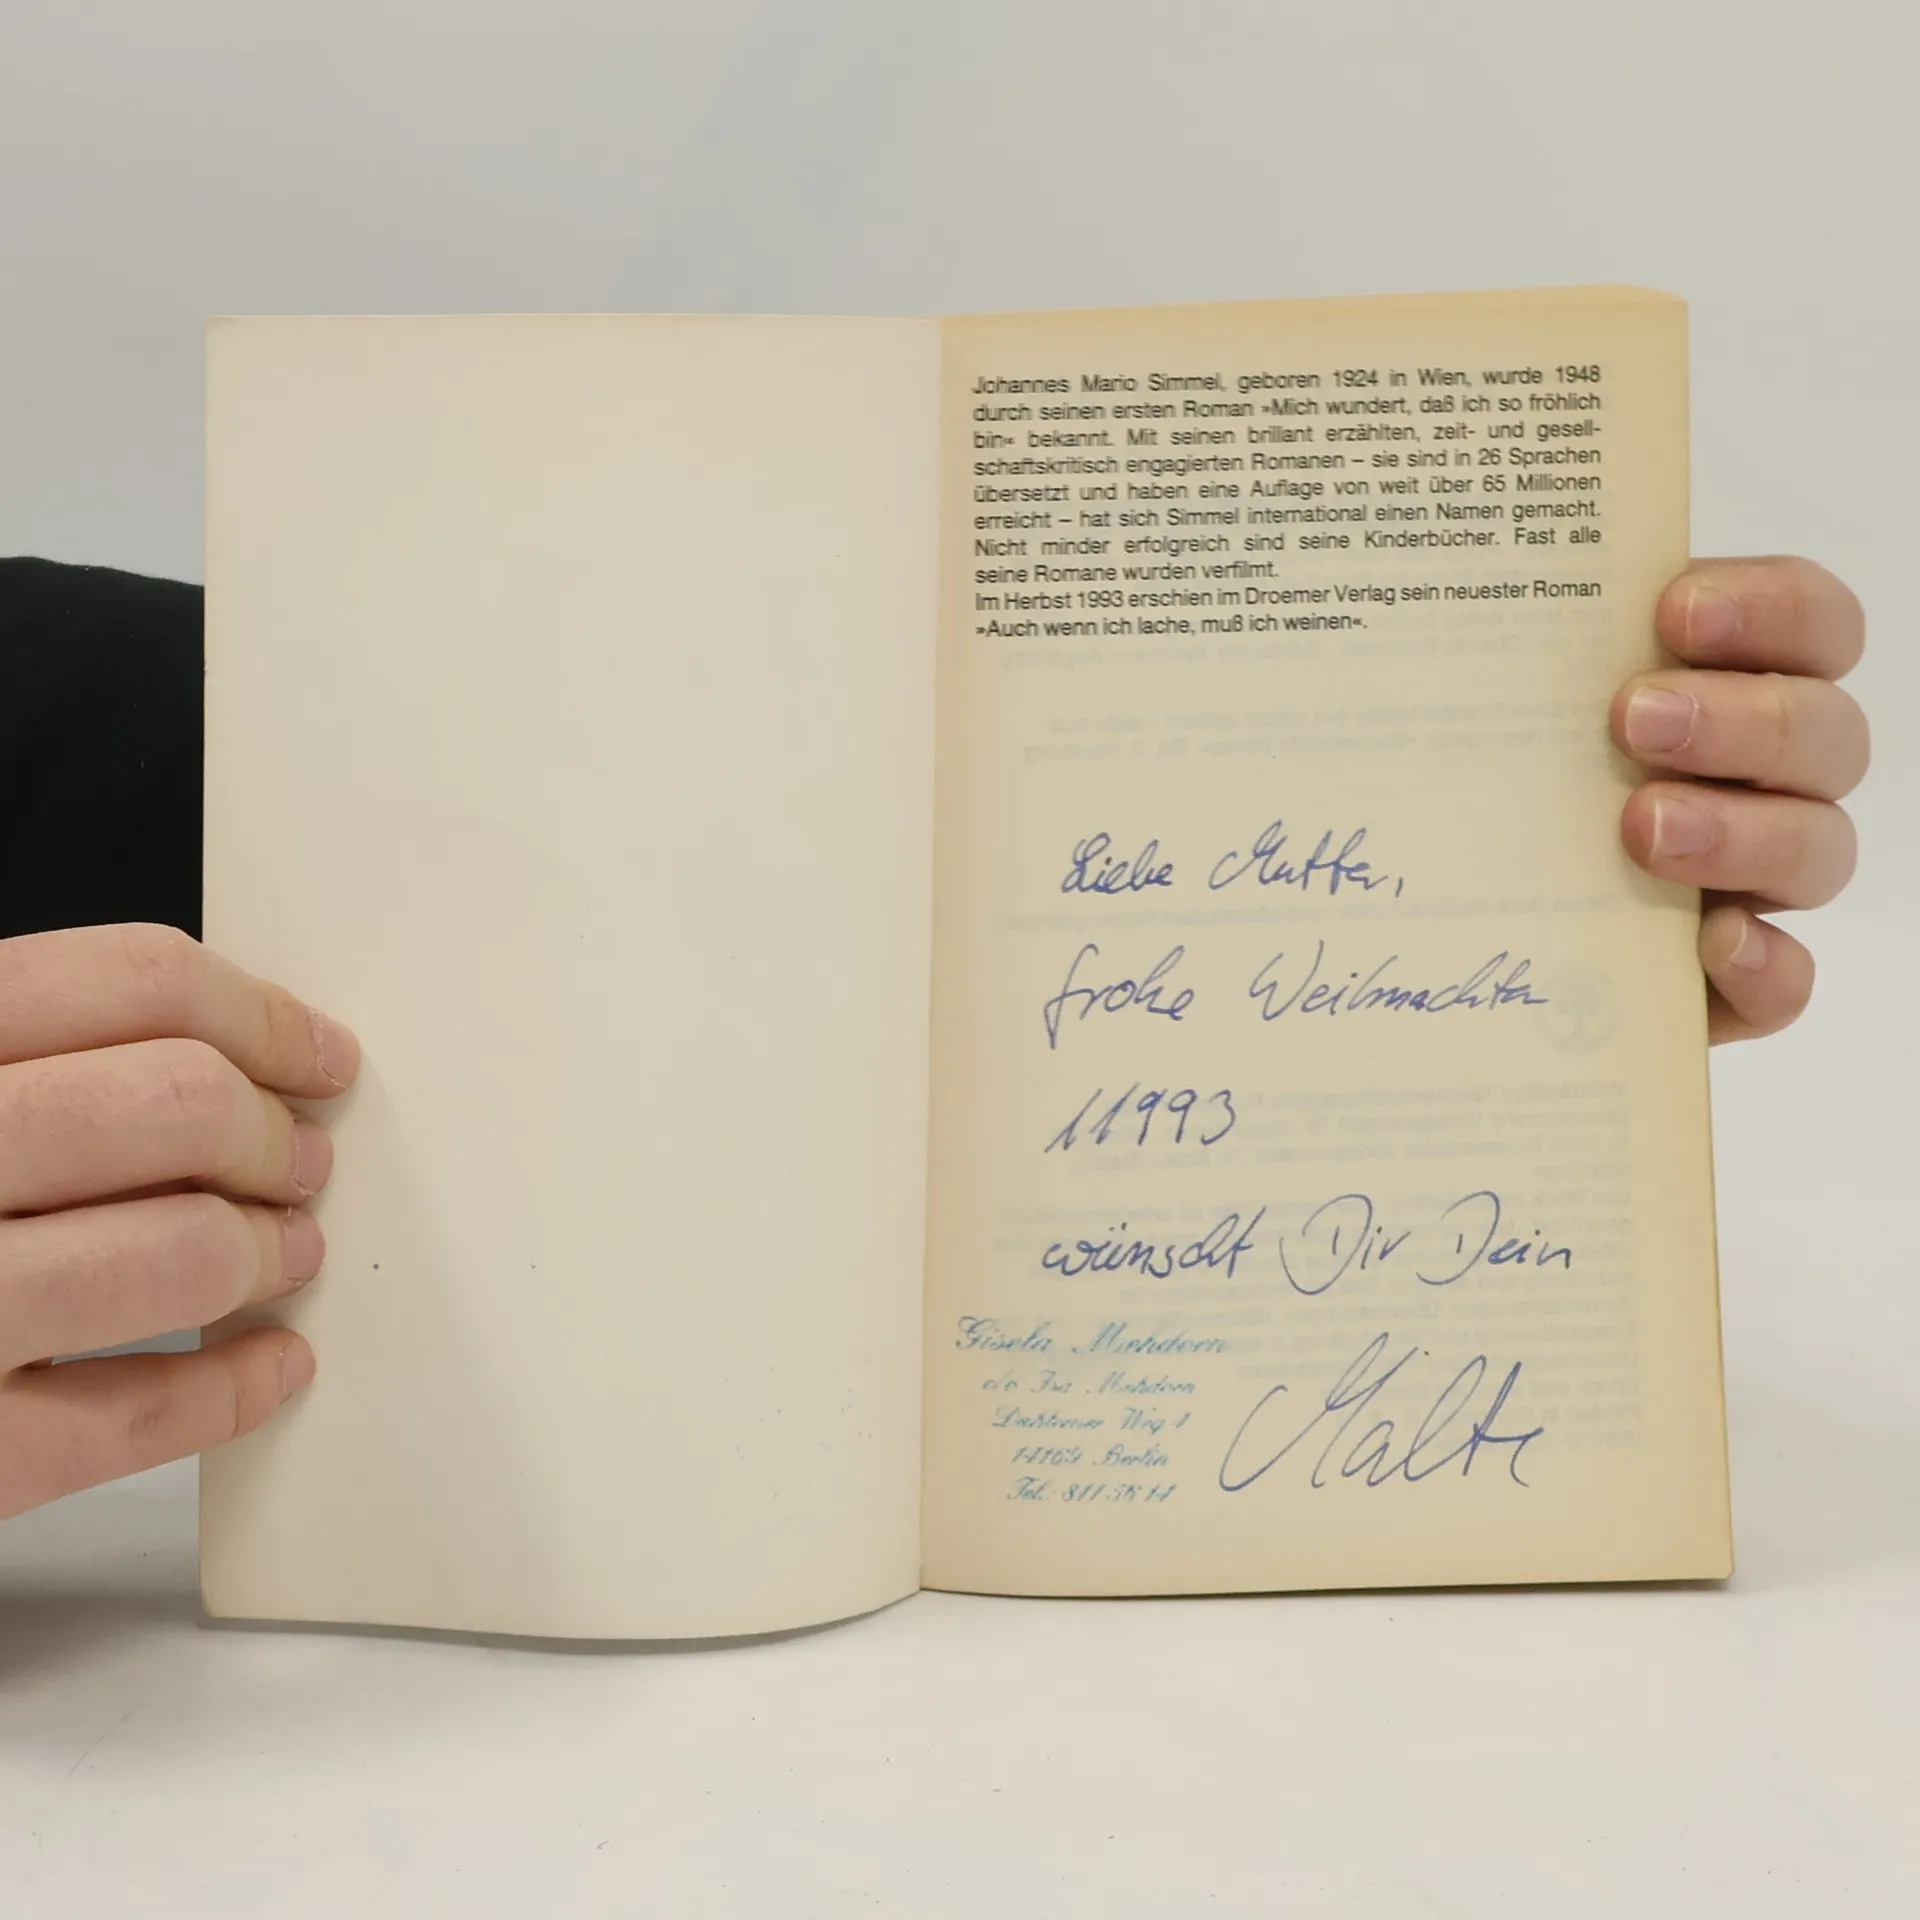 Johannes Mario Simmel, geboren 1924 in Wien, wurde 1948
durch seinen ersten Roman »Mich wundert, daß ich so fröhlich
bin« bekannt. Mit seinen brillant erzählten, zeit- und gesell-
schaftskritisch engagierten Romanen – sie sind in 26 Sprachen
übersetzt und haben eine Auflage von weit über 65 Millionen
erreicht – hat sich Simmel international einen Namen gemacht.
Nicht minder erfolgreich sind seine Kinderbücher. Fast alle
seine Romane wurden verfilmt.
Im Herbst 1993 erschien im Droemer Verlag sein neuester Roman
»Auch wenn ich lache, muß ich weinen«.
Liebe Mutter,
frohe Weihnachten
1993
wünscht Dir Dein
Malte
Gisela
c/o
Weg
14169 Berlin
Tel.: